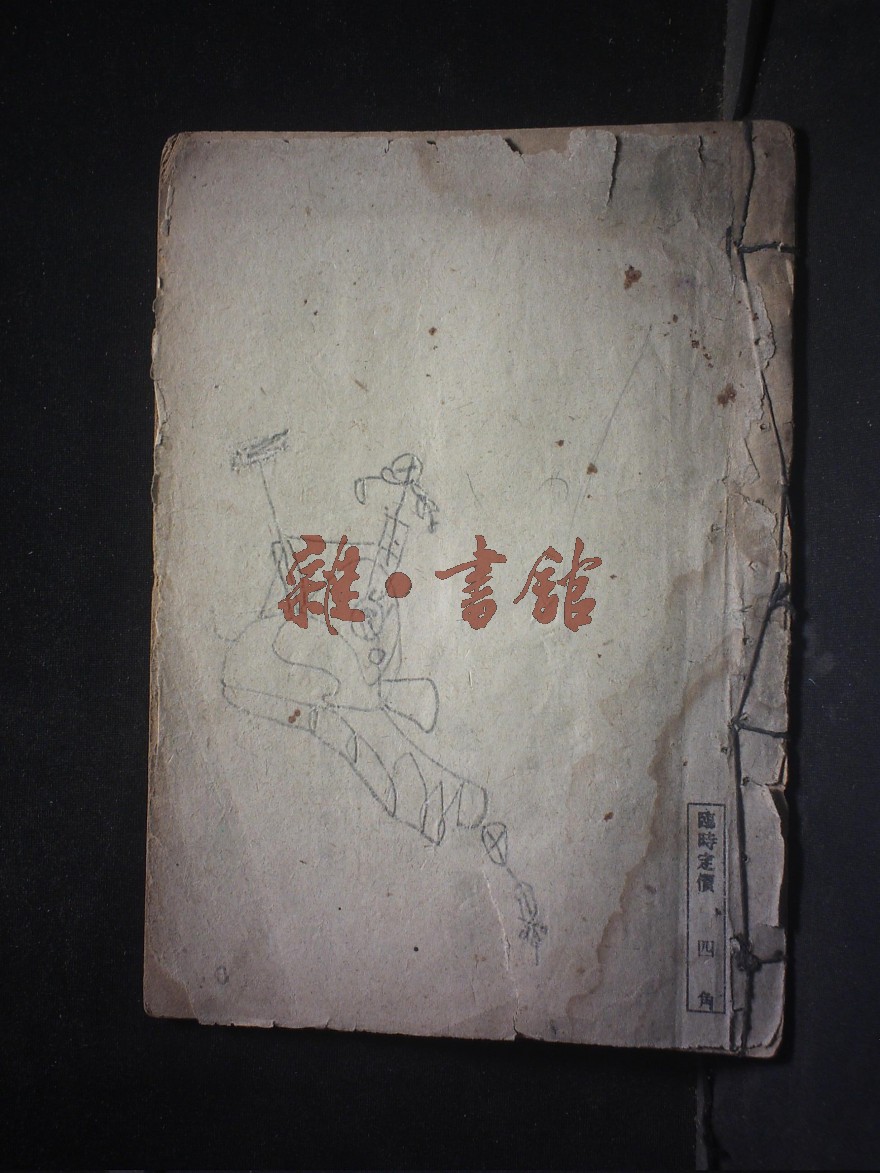 雜·書館
臨時定價 四角